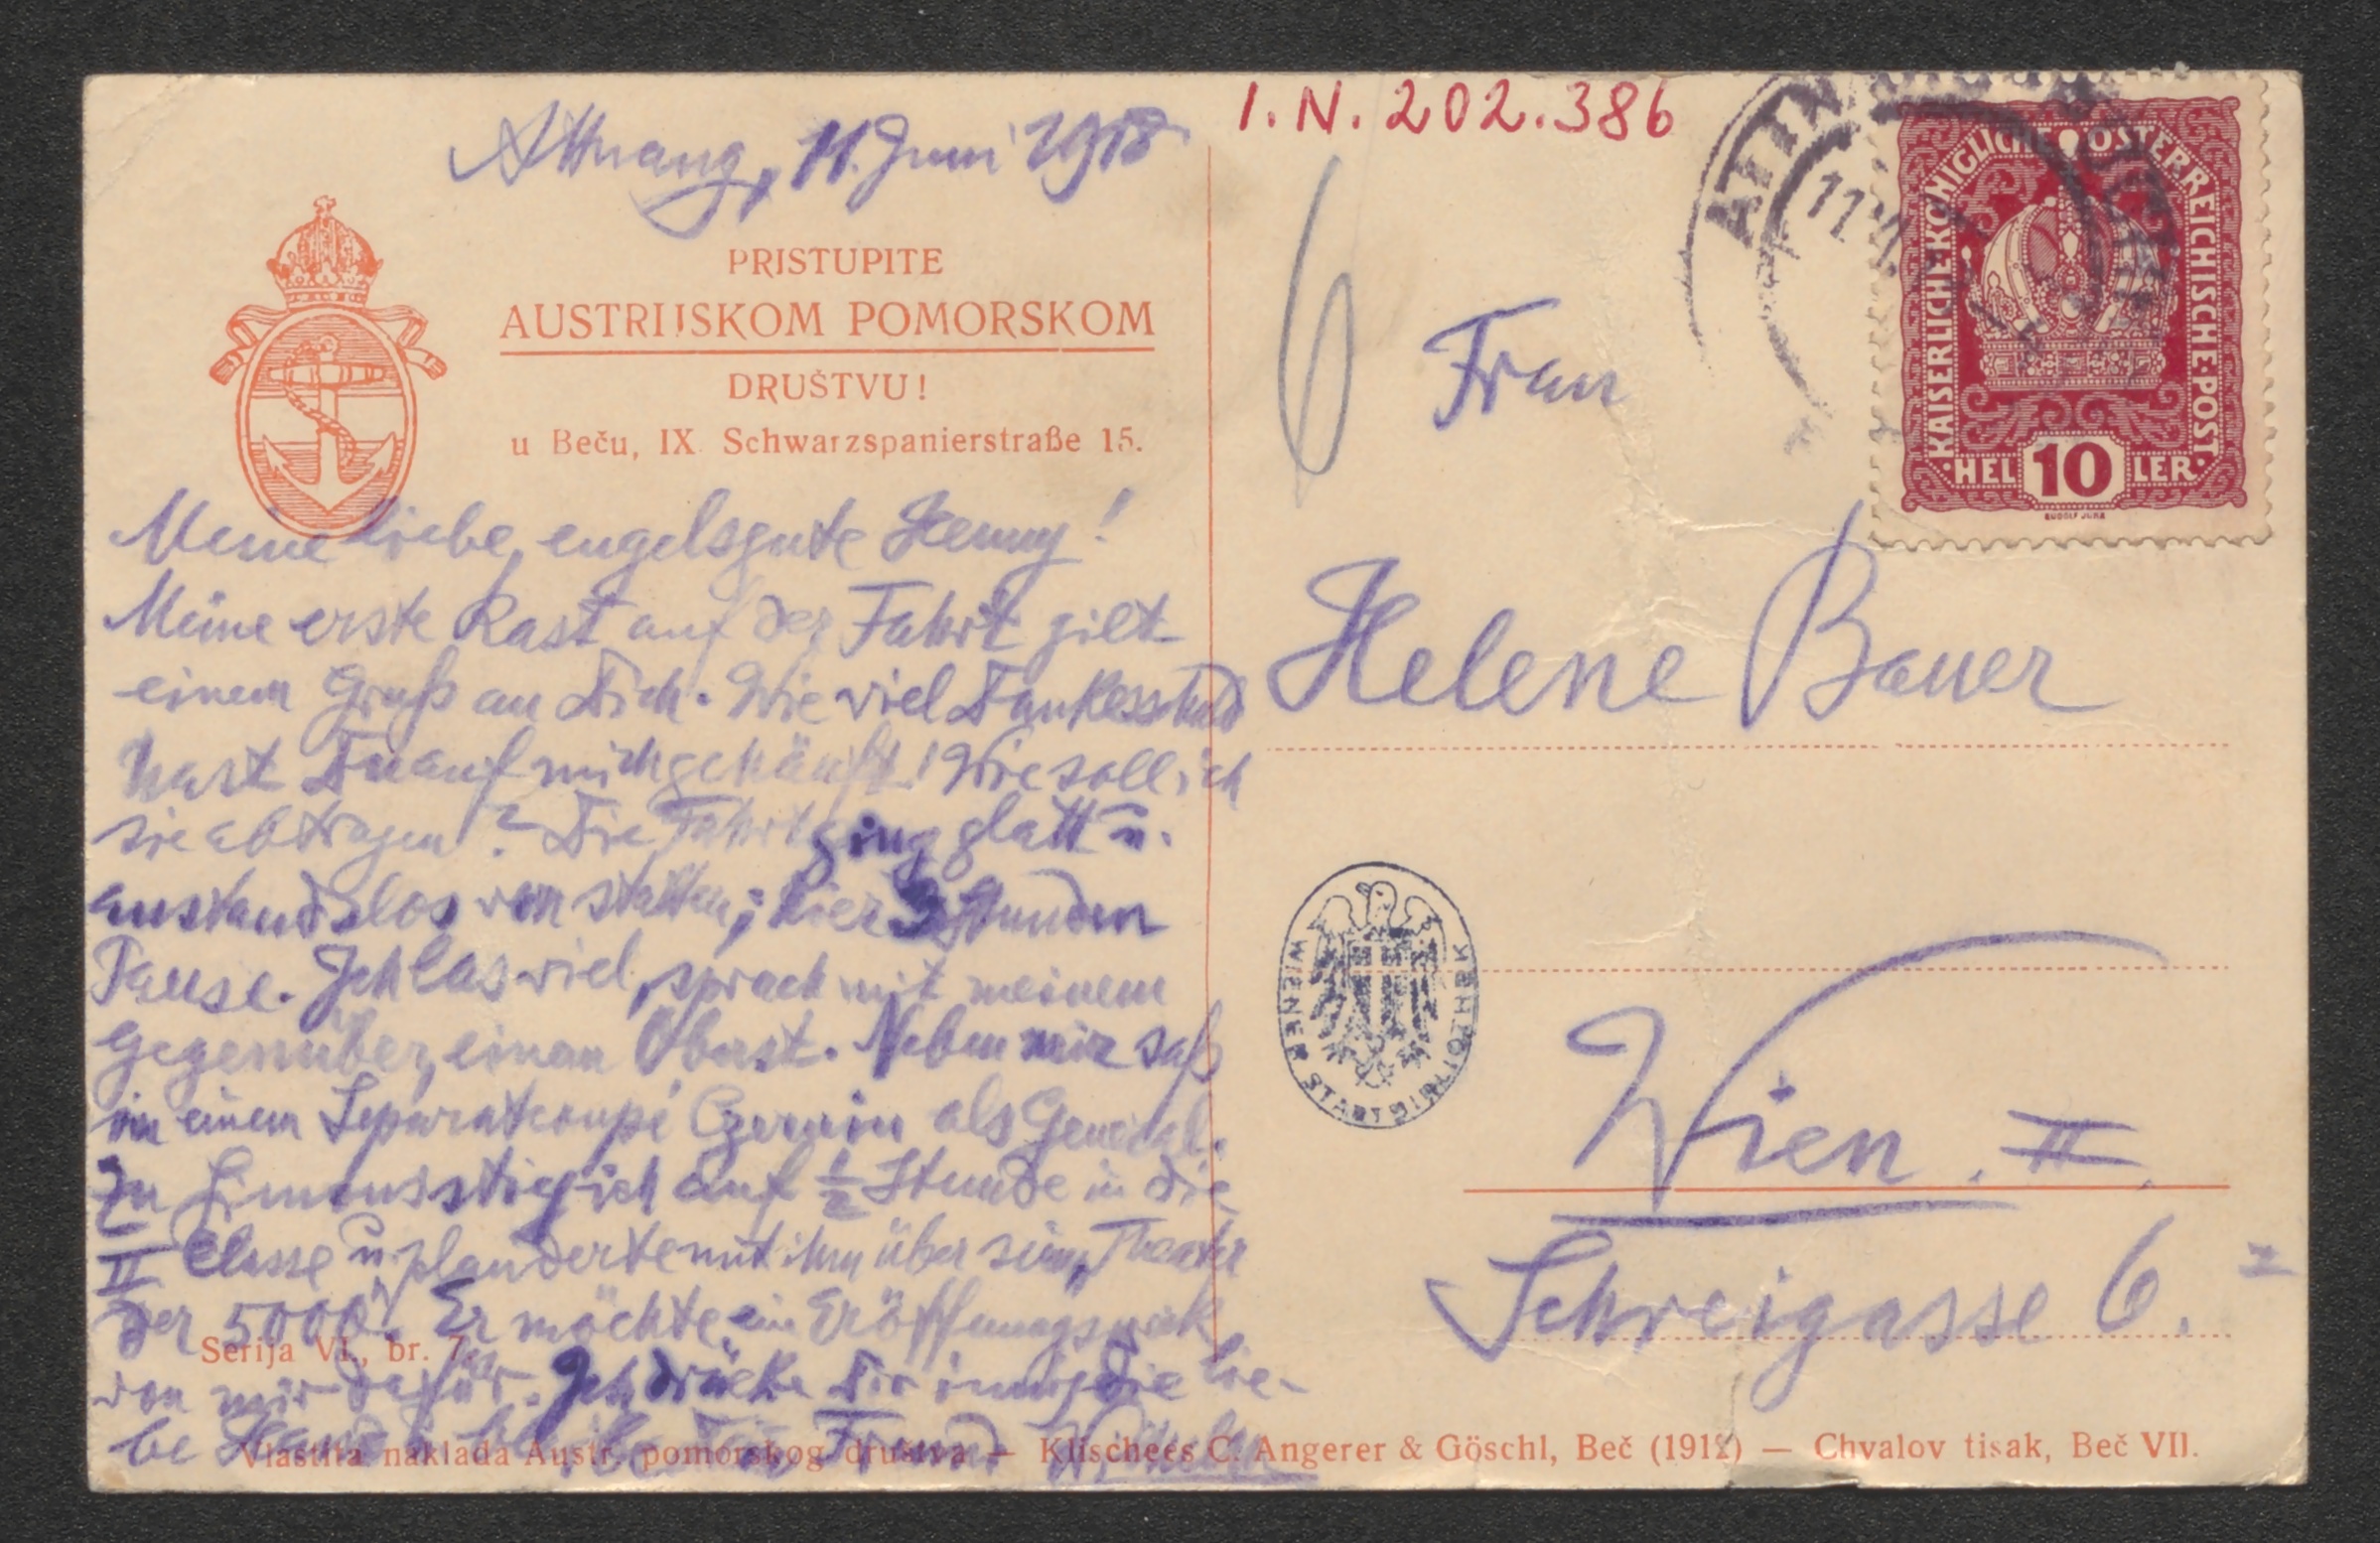 I.N. 202.386
Attnang, 11. Juni 1918
PRISTUPITE
AUSTRIJSKOM POMORSKOM
DRUŠTVU!
u Beču, IX. Schwarzspanierstraße 15.
Meine liebe, engelsgute Henny!
Meine erste Rast auf der Fahrt gilt
einem Gruß an Dich. Wie viel Dankesschuld
hast Du auf mich gehäuft! Wie soll ich
sie abtragen? Die Fahrt ging glatt u.
anstandslos von statten; hier 3 Stunden
Pause. Ich las viel, sprach mit meinem
Gegenüber, einem Oberst. Neben mir saß
in einem Separatcoupé Czernin als General.
In stieg ich auf ½ Stunde in die
II Classe u. plauderte mit ihm über sein „Theater
der 5000". Er möchte ein Eröffnungswerk
von mir dafür. Ich drücke Dir innig die lie-
be Hand Dein Freund
Serija VI., br. 7.
Vlastita naklada Austr. pomorskog društva — Klischees C. Angerer & Göschl, Beč (1912) — Chvalov tisak, Beč VII.
6
Frau
Helene Bauer
Wien. II.
Schreigasse 6.
KAISERLICHE KÖNIGLICHE ÖSTERREICHISCHE POST
HELLER
10
RUDOLF JUNK
11
WIENER STADTBIBLIOTHEK